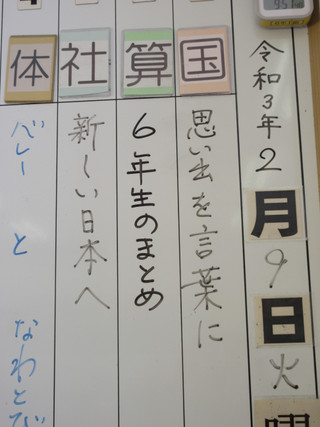 令和3年2月9日火曜
国 思い出を言葉に
算 6年生のまとめ
社 新しい日本へ
体 バレーとなわとび